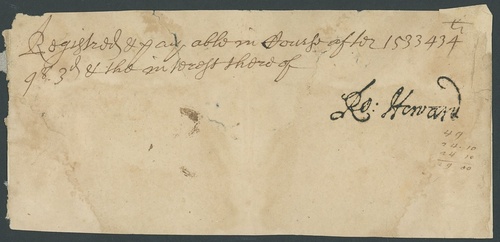 li
Registred & pay able in Course after 1533434
9s 3d & the interest there of
Ro: Howard
49
24-10
24 10
29-00